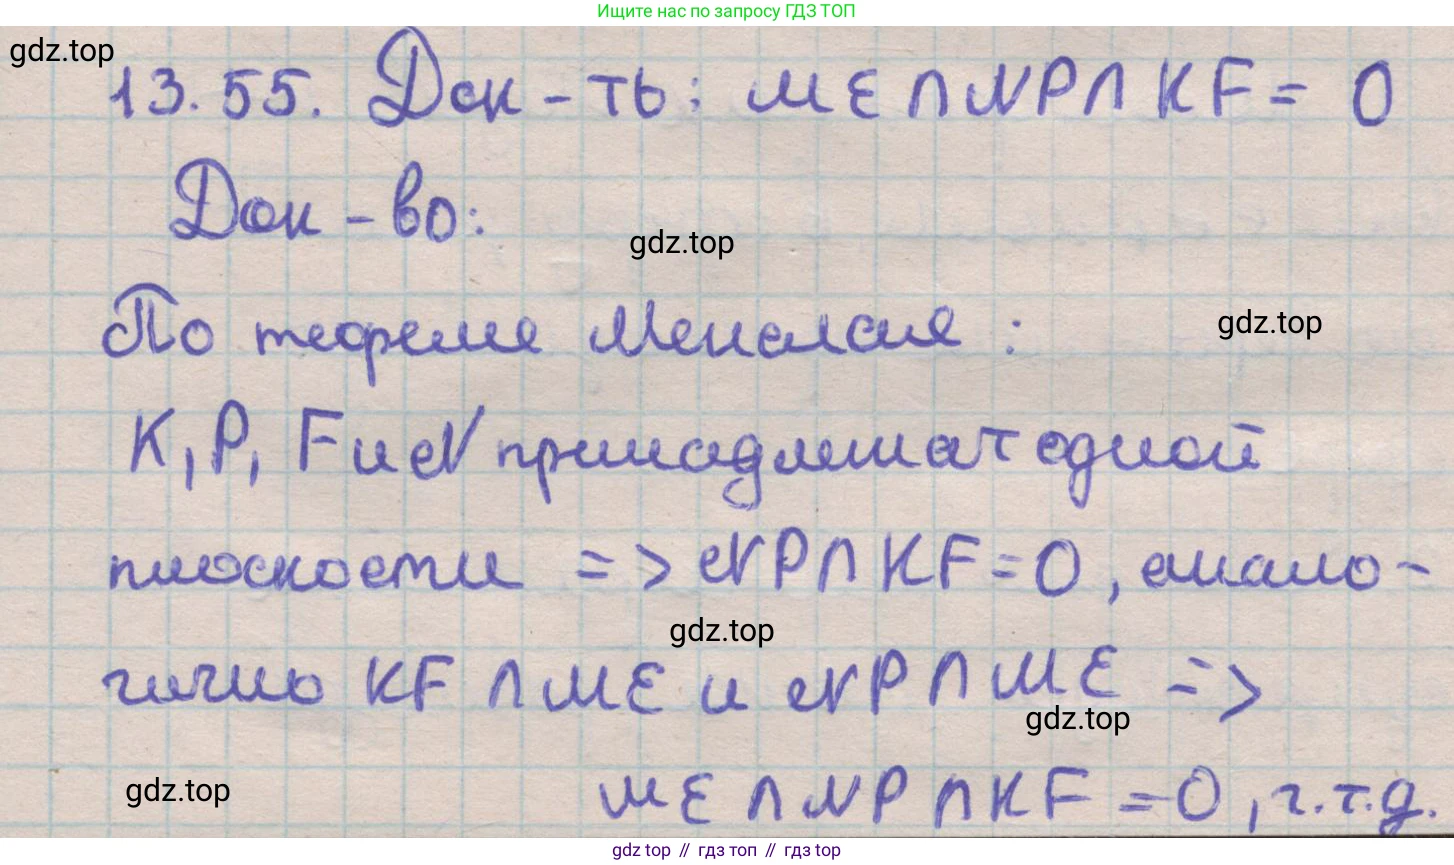 Ищите нас по запросу ГДЗ ТОП
gdz.top
13.55. Док-ть: ME ∩ NP ∩ KF = O
Док-во:
gdz.top
По теореме Менелая:
gdz.top
K, P, F и N принадлежат одной
плоскости => NP ∩ KF = O, анало-
gdz.top
гично KF ∩ ME и NP ∩ ME =>
gdz.top
gdz.top
ME ∩ NP ∩ KF = O, ч.т.д.
gdz top // гдз топ // gdz top